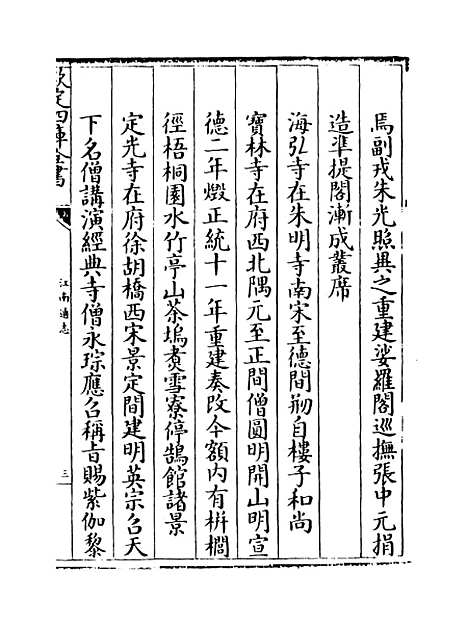 焉副戎朱光照與之重建娑羅閣巡撫張中元捐
造準提閣漸成叢席
海弘寺在朱明寺南宋至德間剏自樓子和尚
寶林寺在府西北隅元至正間僧圓明開山明宣
德二年燬正統十一年重建奏改今額內有栟櫚
徑梧桐園水竹亭山茶塢煑雪寮停鵠館諸景
定光寺在府徐胡橋西宋景定間建明英宗召天
下名僧講演經典寺僧永琮應召稱旨賜紫伽黎
欽定四庫全書
江南通志
三